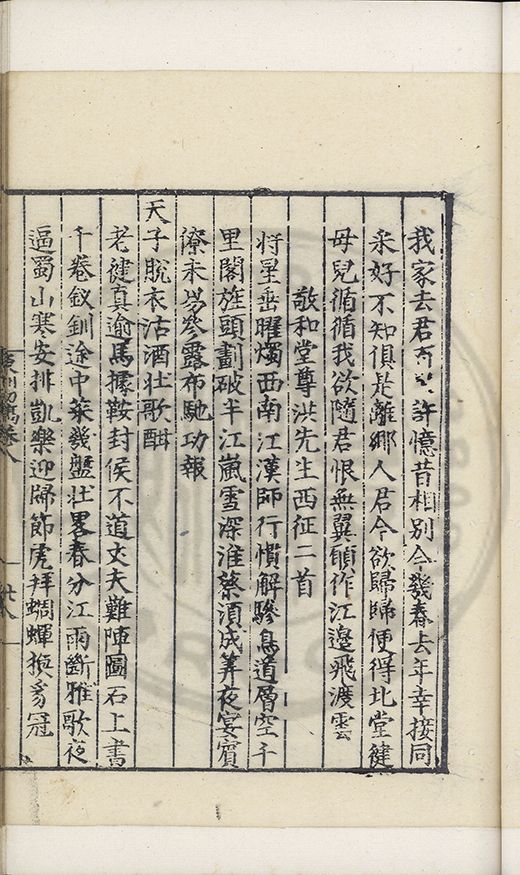 我家去君許憶昔相別今幾春去年幸接同
來好不知俱是離鄉人君今欲歸歸便得北堂健
母兒循循我欲隨君恨無翼願作江邊飛渡雲
敬和堂尊洪先生西征二首
將星垂曜燭西南江漢師行慣解驂鳥道層空千
里閣旌頭劃破半江嵐雪深淮蔡須成筭夜宴賓
僚未易參露布馳功報
天子脫衣沽酒壯歌酣
老健真逾馬據鞍封侯不道丈夫難陣圖石上書
千卷釵釧途中菜幾盤壯畧春分江雨斷雅歌夜
逼蜀山寒安排凱樂迎歸節虎拜蜩蟬換豸冠
卷八